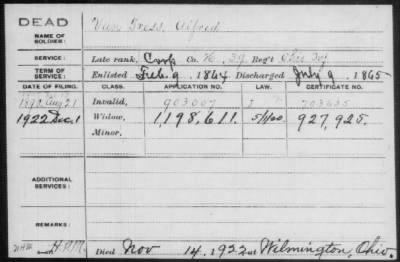 DEAD
NAME OF SOLDIER: Van Tress, Alfred
SERVICE: Late rank, Corp Co. H, 39 Reg't Ohio Inf
TERM OF SERVICE: Enlisted Feb. 9, 1864 Discharged July 9, 1865
DATE OF FILING. CLASS. APPLICATION NO. LAW. CERTIFICATE NO.
Aug 21 Invalid, 903007 703635
1922 Dec. 1 Widow, 1,198,611. 5/1/20. 927,925.
Minor.
ADDITIONAL SERVICES:
REMARKS:
Died Nov 14, 1922 at Wilmington, Ohio.